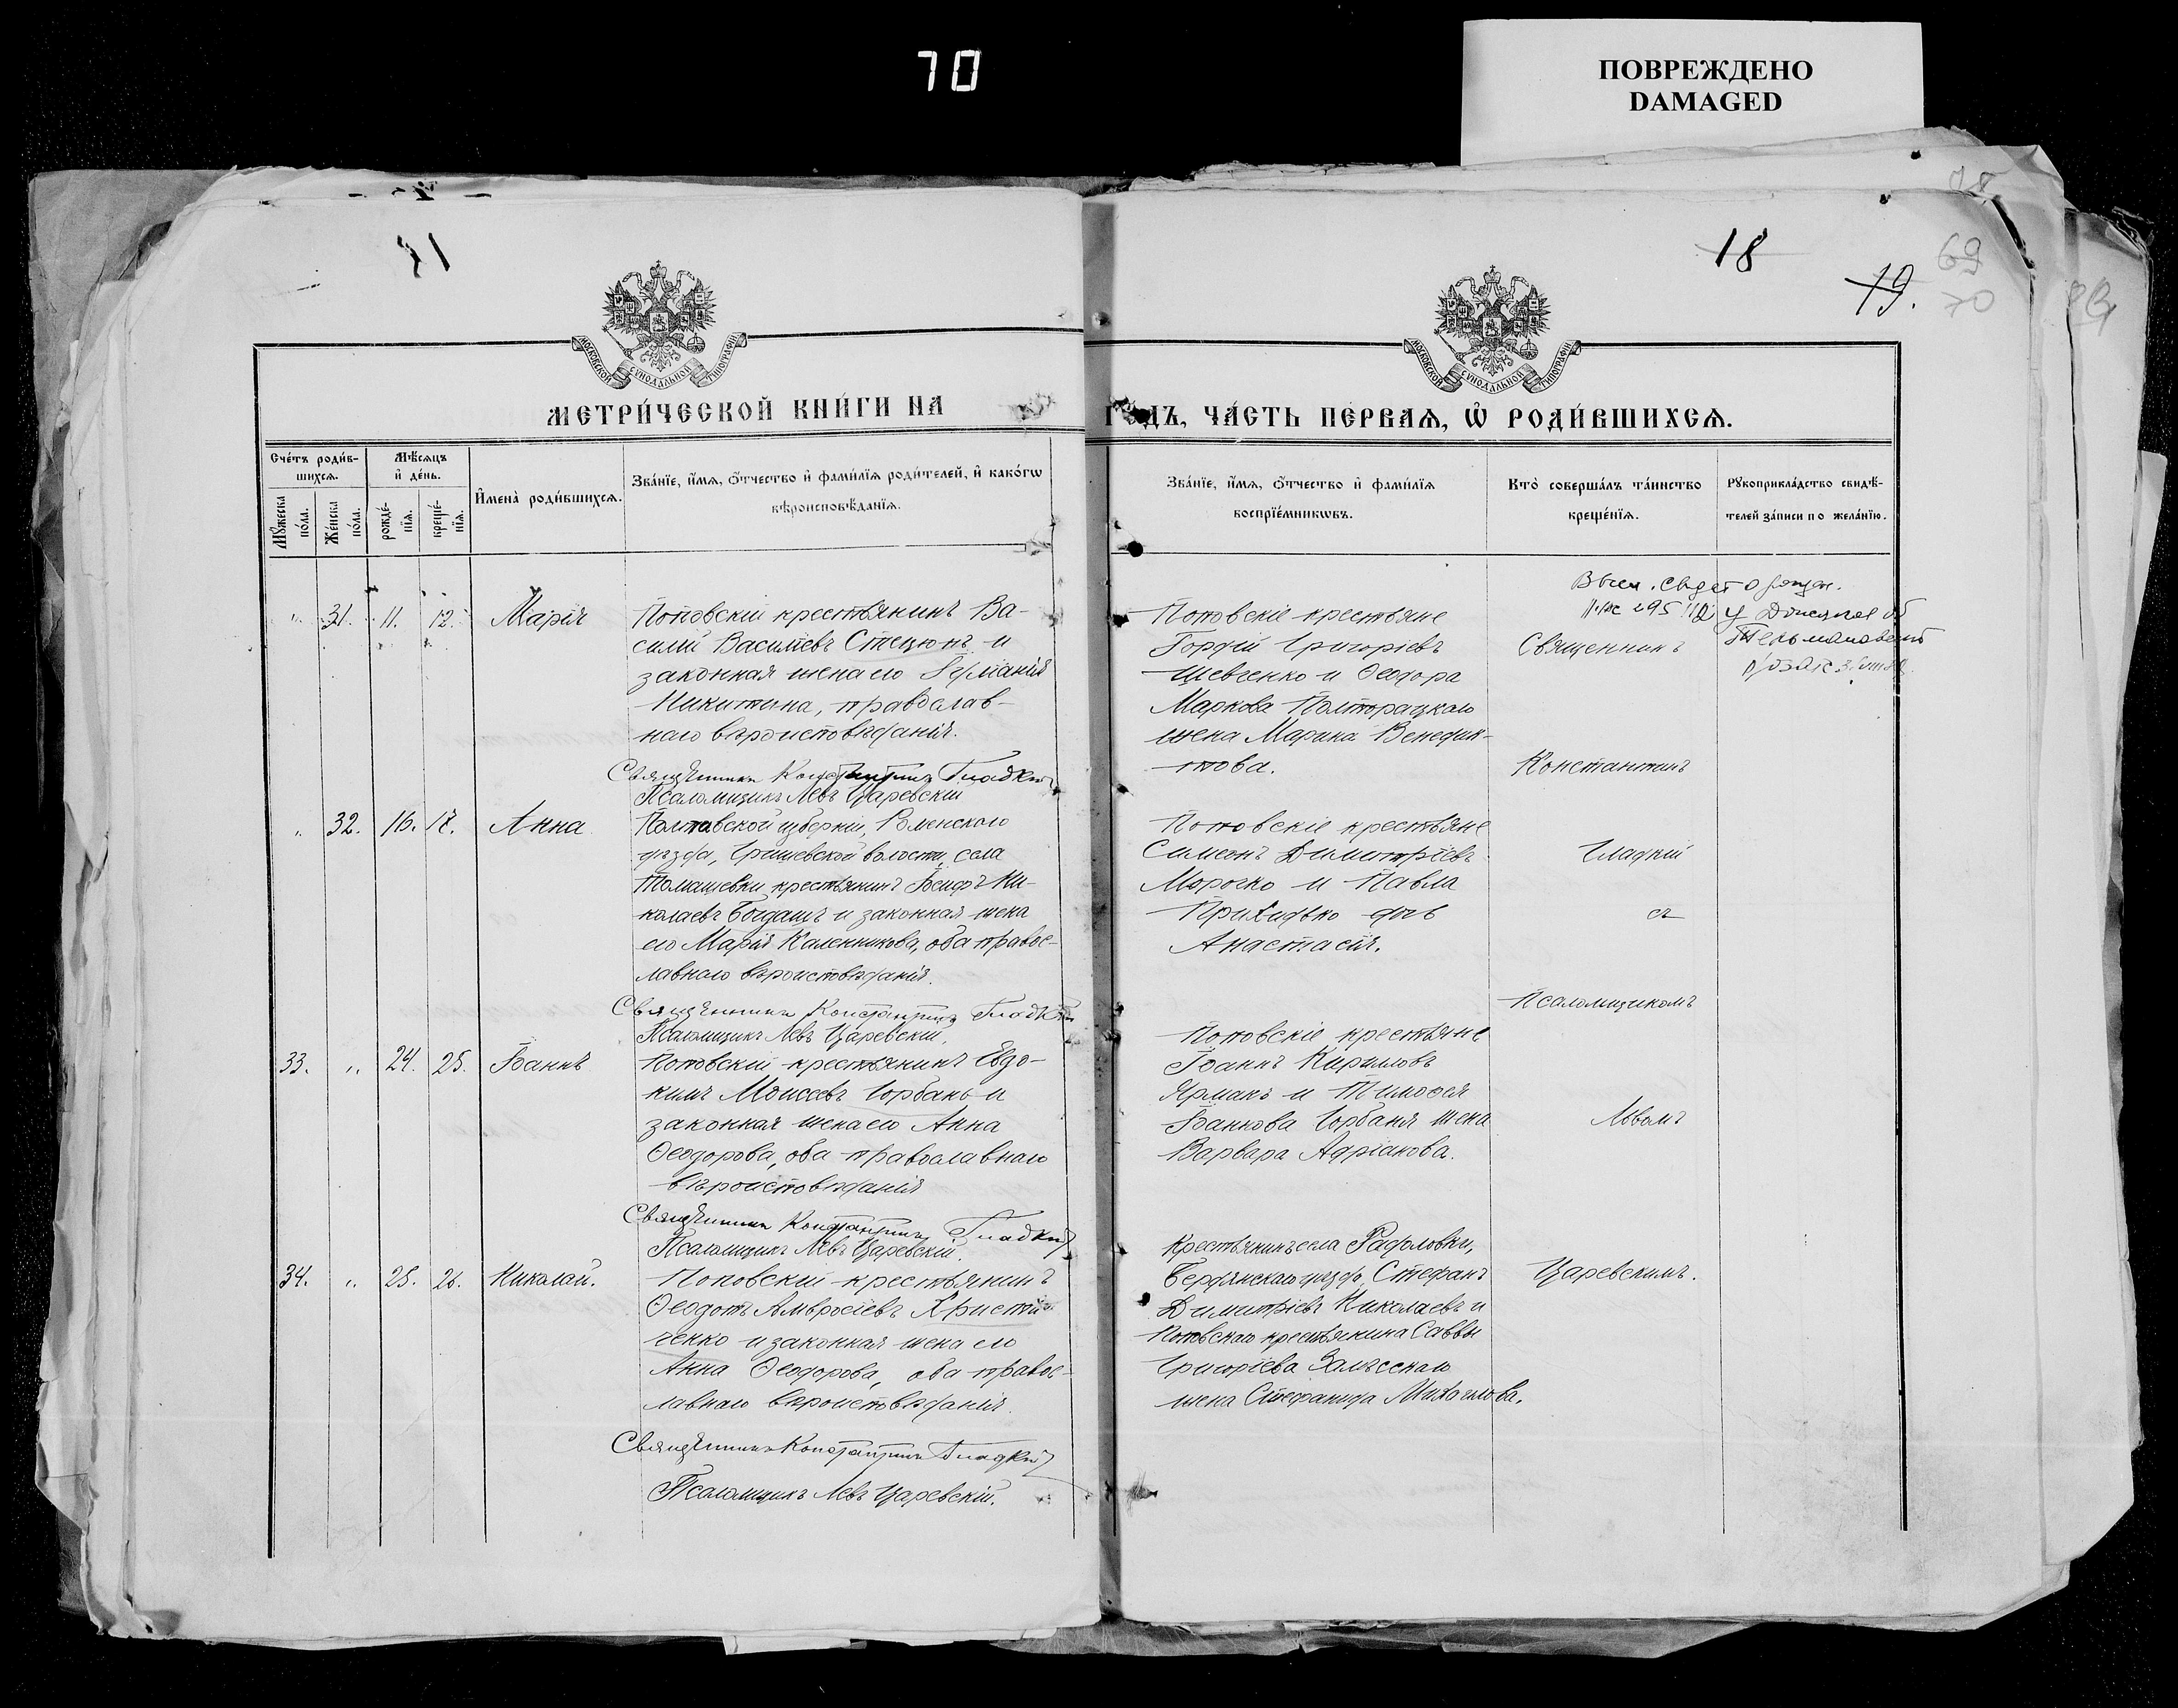 70
ПОВРЕЖДЕНО
DAMAGED
18
19.
69
70
МОСКОВСКОЙ СѴНОДАЛЬНОЙ ТИПОГРАФІИ
МОСКОВСКОЙ СѴНОДАЛЬНОЙ ТИПОГРАФІИ
МЕТРИ́ЧЕСКОЙ КНИ́ГИ НА
ГОДЪ, ЧА́СТЬ ПЕ́РВАЯ, Ѡ РОДИ́ВШИХСЯ.
Сче́тъ роди́в-
шихся.
Мѣ́сяцъ
и҆ де́нь.
Мꙋ́жеска по́ла.
Же́нска по́ла.
рожде́-нїя.
креще́-нїя.
И҆мена̀ роди́вшихся.
Зва́нїе, и҆́мя, ѻ҆́тчество и҆ фами́лїя роди́телей, и҆ како́гѡ
вѣроисповѣ́данїя.
Зва́нїе, и҆́мя, ѻ҆́тчество и҆ фами́лїя
воспрїе́мникѡвъ.
Кто̀ соверша́лъ та́инство
креще́нїя.
Рꙋкоприкла́дство свидѣ́-
телей за́писи по жела́нїю.
" 31. 11. 12. Марія
Поповскій крестьянинъ Ва-
силій Васильевъ Стецюкъ и
законная жена его Германія
Никитина, православ-
наго вѣроисповѣданія.
Священникъ Константинъ Гладкій
Псаломщикъ Левъ Царевскій
Поповскіе крестьяне
Гордій Григоріевъ
Шевченко и Ѳеодора
Маркова Полторацкаго
жена Марина Венедик-
това.
Священникъ
Константинъ
Гладкій
съ
Псаломщикомъ
Львомъ
Царевскимъ.
свидет о рожден.
" 32. 16. 17. Анна
Полтавской губерніи, Роменскаго
уѣзда, Гришевской волости, села
Томашевки крестьянинъ Іосифъ Ни-
колаевъ Богдашъ и законная жена
его Марія Каленникова, оба правос-
лавнаго вѣроисповѣданія.
Священникъ Константинъ Гладкій
Псаломщикъ Левъ Царевскій.
Поповскіе крестьяне
Симеонъ Димитріевъ
Морочко и Павла
Прихидько дочь
Анастасія.
33. " 24. 25. Іоаннъ
Поповскій крестьянинъ Евдо-
кимъ Моисеевъ Горбань и
законная жена его Анна
Ѳеодорова, оба православнаго
вѣроисповѣданія
Священникъ Константинъ Гладкій
Псаломщикъ Левъ Царевскій.
Поповскіе крестьяне
Іоаннъ Кирилловъ
Ярмакъ и Тимоѳея
Іоаннова Горбаня жена
Варвара Адріанова.
34. " 25. 26. Николай.
Поповскій крестьянинъ
Ѳеодотъ Амвросіевъ Христи-
ченко и законная жена его
Анна Ѳеодорова, оба правос-
лавнаго вѣроисповѣданія.
Священникъ Константинъ Гладкій
Псаломщикъ Левъ Царевскій.
Крестьянинъ села Радоловки,
Бердянскаго уѣзда, Стефанъ
Димитріевъ Николаевъ и
Поповскаго крестьянина Саввы
Григоріева Залѣсскаго
жена Стефанида Михаилова.